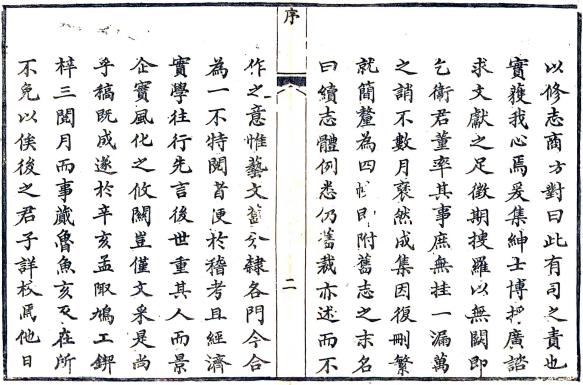 以修志商方對曰此有司之責也
實獲我心焉爰集紳士博搜廣諮
求文獻之足徵期搜羅以無闕即
乞衛君董率其事庶無挂一漏萬
之誚不數月裒然成集因復刪繁
就簡釐為四附舊志之末名
曰續志體例悉仍舊裁亦述而不
序
二
作之意惟藝文舊分隸各門今合
為一不特閱者便於稽考且經濟
實學往行先言後世重其人而景
企實風化之攸關豈僅文采是尚
乎稿既成遂於辛亥孟陬鳩工鋟
梓三閱月而事蕆魯魚亥豕在所
不免以俟後之君子詳校焉他日